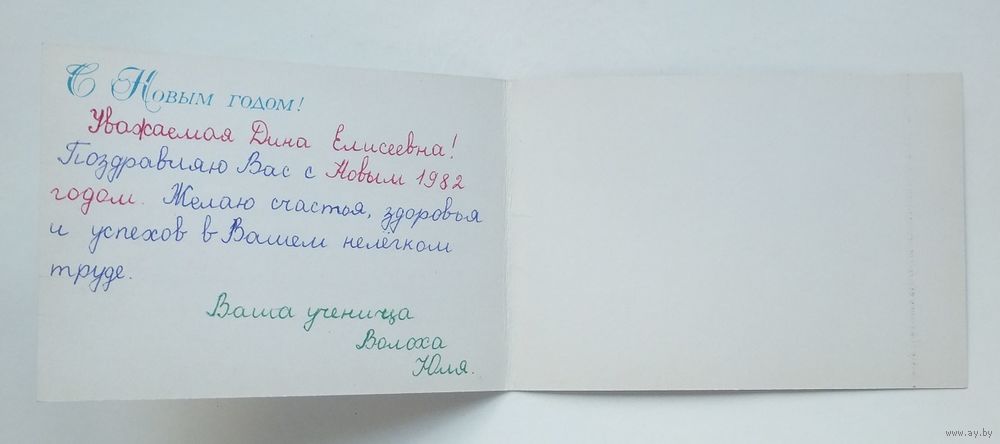 С Новым годом!
Уважаемая Дина Елисеевна!
Поздравляю Вас с Новым 1982
годом. Желаю счастья, здоровья
и успехов в Вашем нелёгком
труде.
Ваша ученица
Волоха
Юля.
www.ay.by